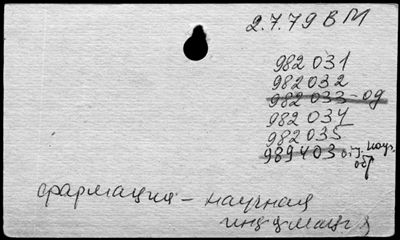 2.7.79 ВМ
982 031
982 032
982 033 - од
982 034
982 035
989 403 отд. науч.
обр
формация - научная